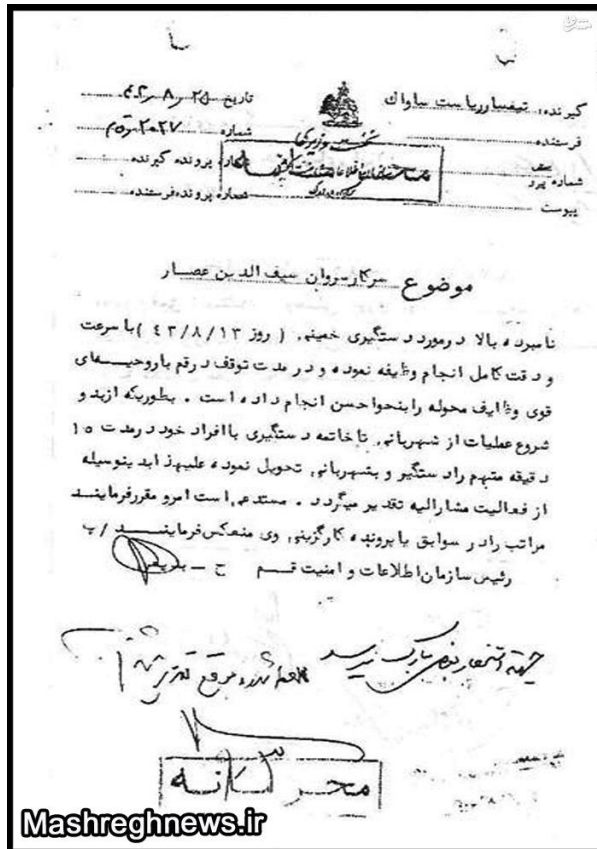 گیرنده: تیمسار ریاست ساواک
تاریخ ۲۵ ر ۸ ر ۴۳
فرستنده
نخست وزیری
شماره
شماره پرونده گیرنده
پیوست
شماره پرونده فرستنده
موضوع سرکار سروان سیف الدین عصار
نامبرده بالا در مورد دستگیری خمینی ( روز ۴۳/۸/۱۳ ) با سرعت
و دقت کامل انجام وظیفه نموده و در مدت توقف در قم با روحیه‌ای
قوی وظایف محوله را بنحو احسن انجام داده است . بطوریکه از بدو
شروع عملیات از شهربانی تا خاتمه دستگیری با افراد خود در مدت ۱۵
دقیقه متهم را دستگیر و بشهربانی تحویل نموده علیهذا بدینوسیله
از فعالیت مشارالیه تقدیر میگردد . مستدعی است امر و مقرر فرمایند
مراتب را در سوابق یا پرونده کارگزینی وی منعکس فرمایند / پ
رئیس سازمان اطلاعات و امنیت قم ح - بدیعی
محرمانه
Mashreghnews.ir